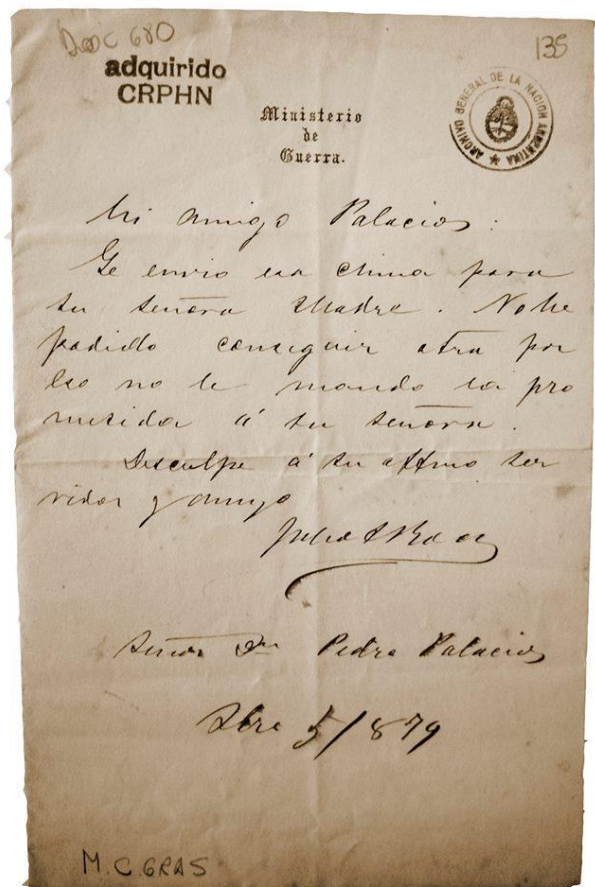 Doc 680
135
adquirido
CRPHN
ARCHIVO GENERAL DE LA NACION ARGENTINA
Ministerio
de
Guerra.
Mi amigo Palacios:
Le envio esa china para
su señora Madre. No he
podido conseguir otra por
eso no le mando la pro
metida á su señora.
Desculpe á su affmo ser
vidor y amigo
Julio A Roca
Señor Dn Pedro Palacios
5/879
M.C.GRAS